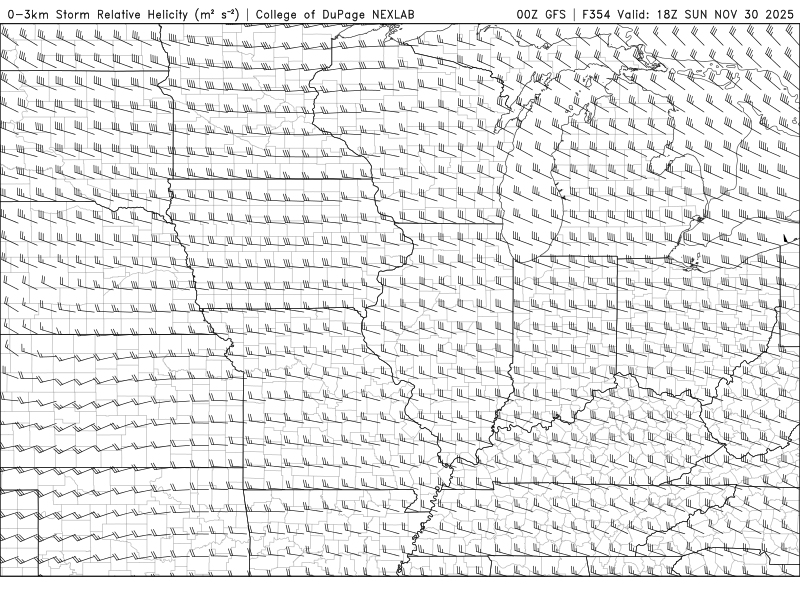 0-3km Storm Relative Helicity (m² s⁻²) | College of DuPage NEXLAB
00Z GFS | F354 Valid: 18Z SUN NOV 30 2025